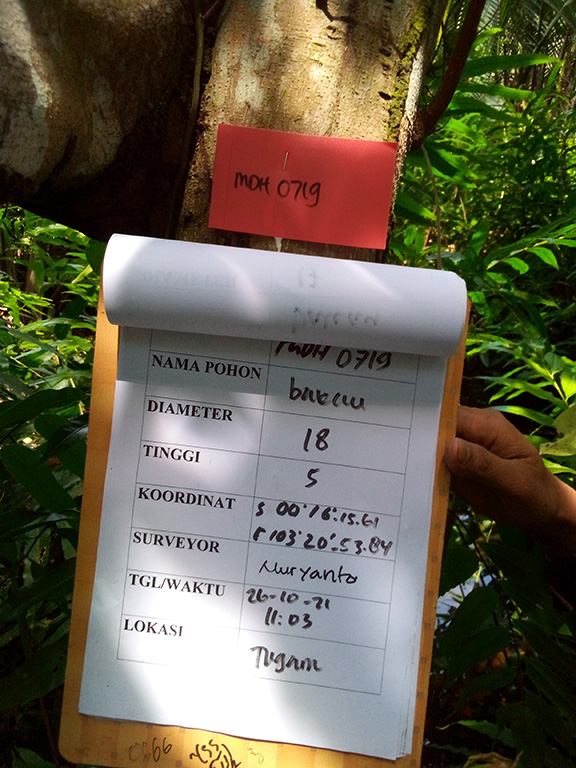 MDH 0719
MDH 0719
NAMA POHON
DIAMETER 18
TINGGI 5
KOORDINAT S 00°16'.15.61
E 103°20'.53.84
SURVEYOR Nuryanto
TGL/WAKTU 26-10-21
11:03
LOKASI